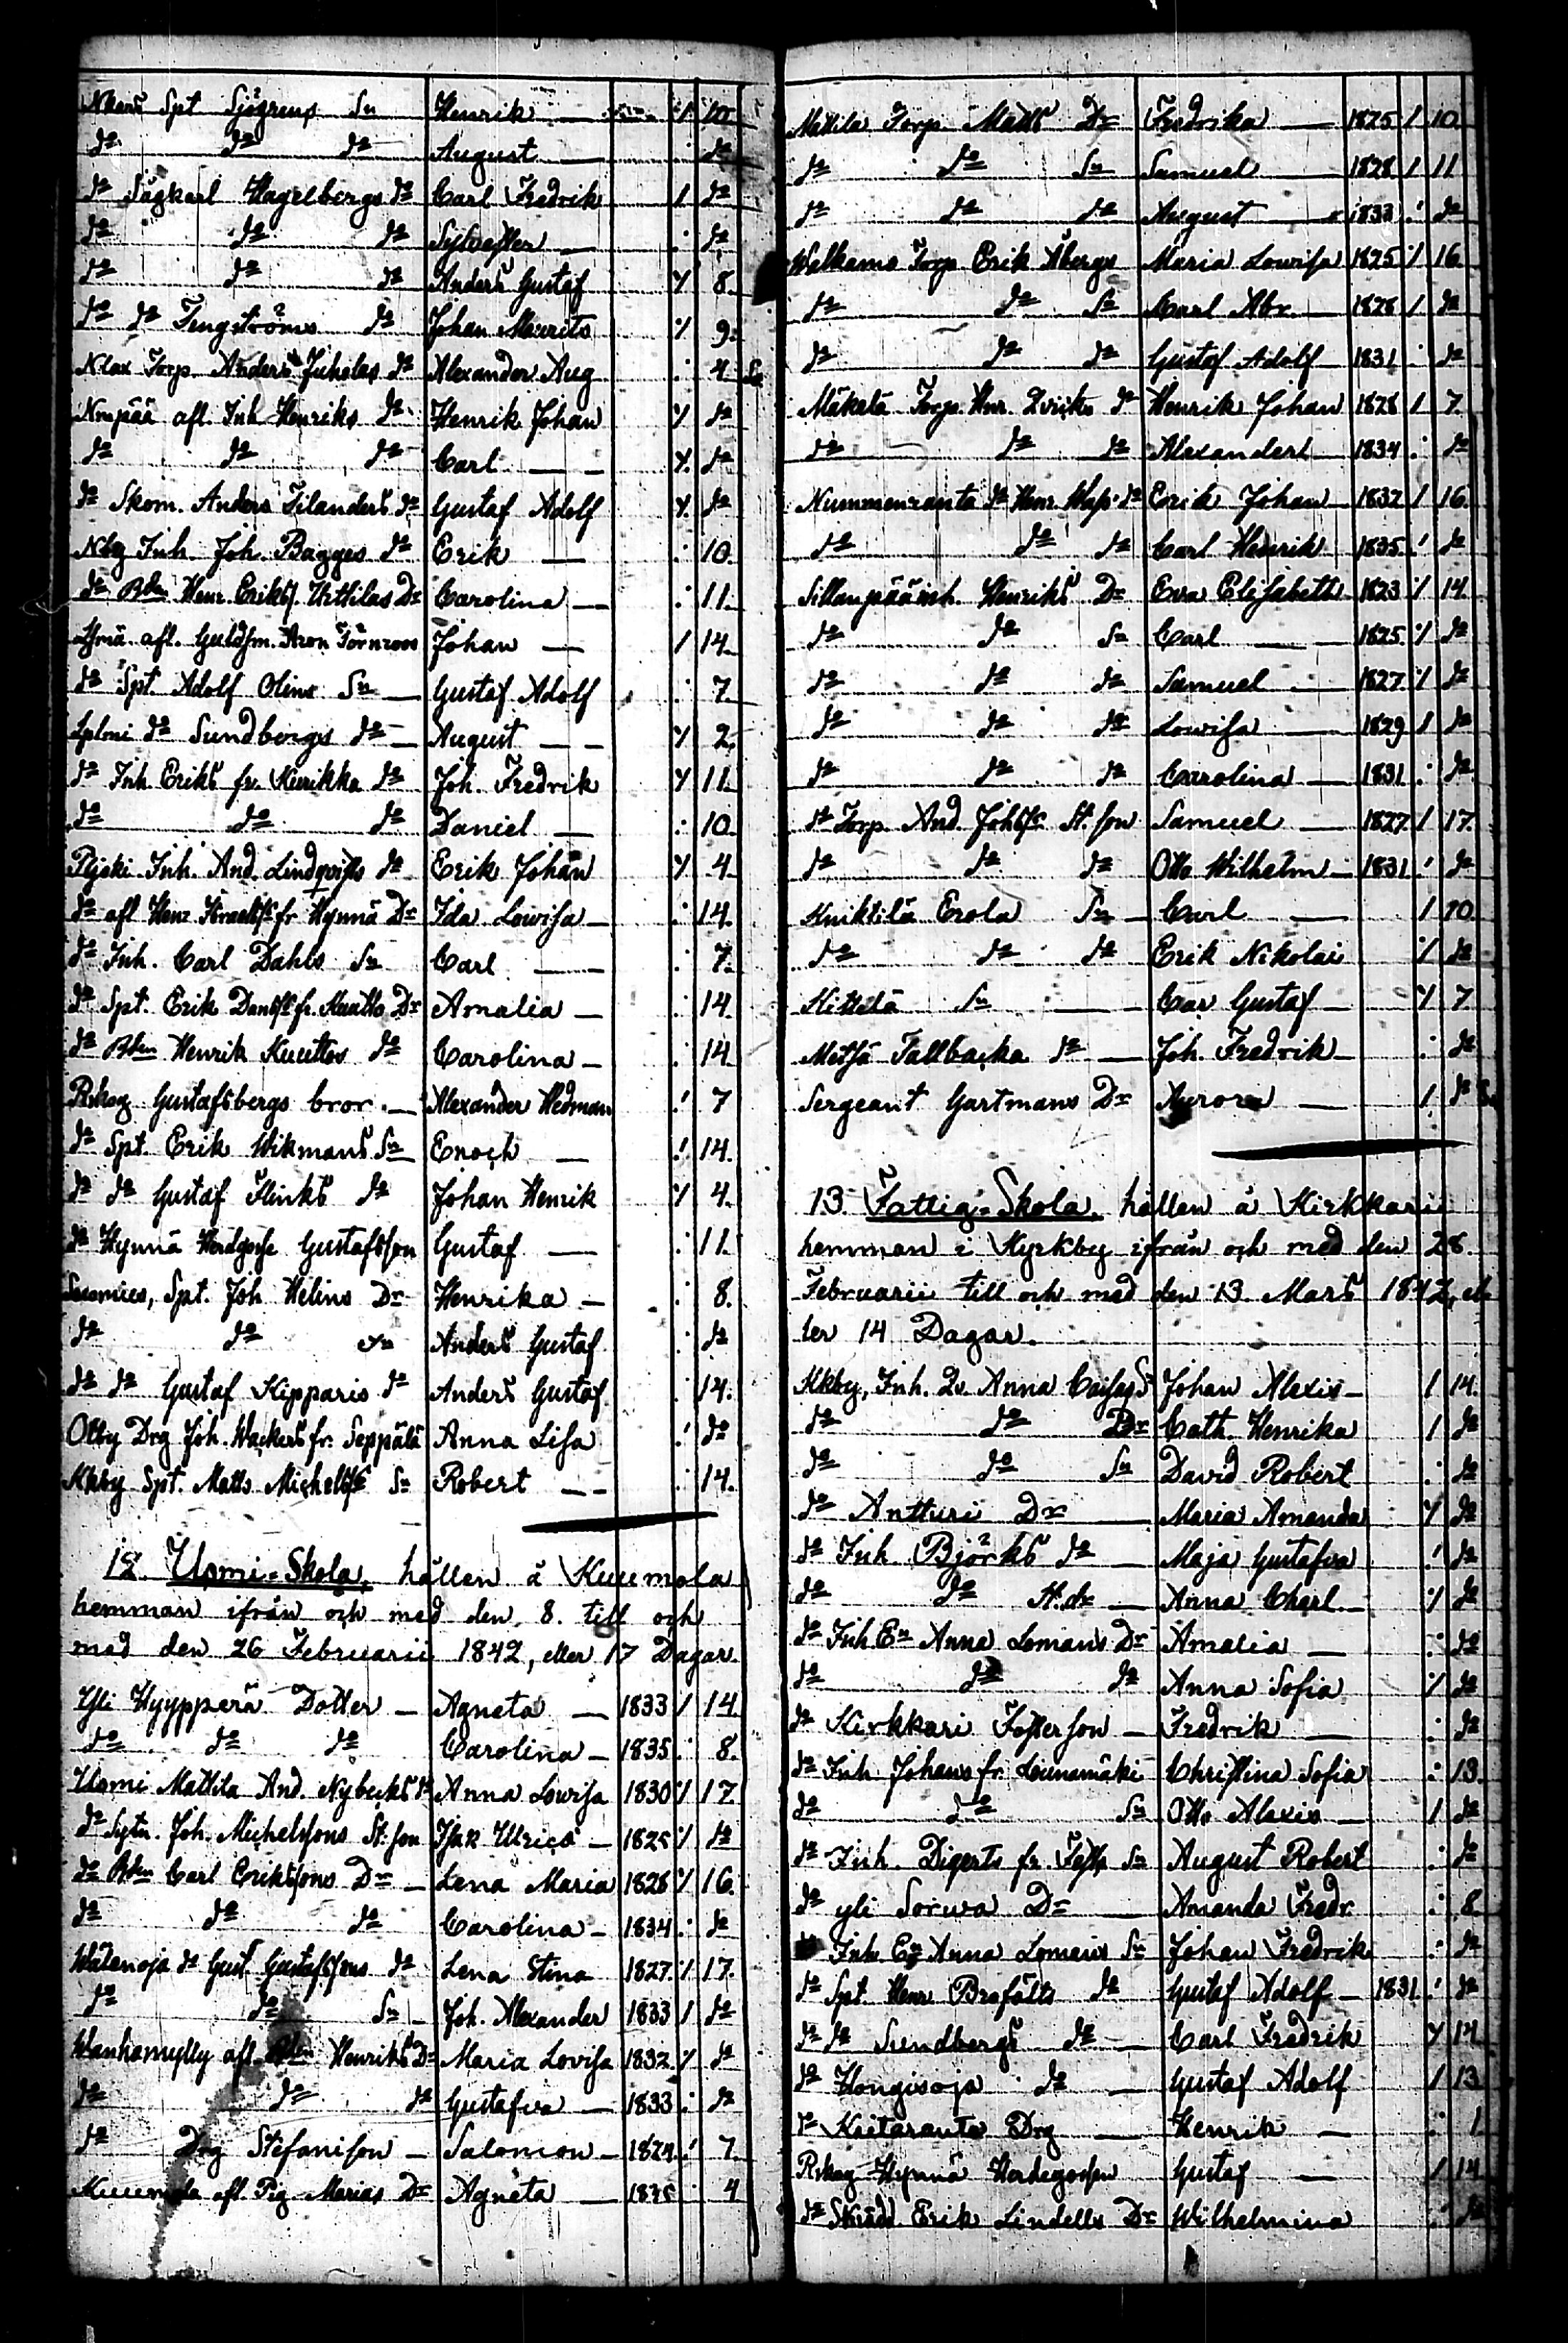 Nkars Spt Sjögrens Sn Henrik — 10
do do do August — do
do Sågkarl Hagelbergs do Carl Fredrik / do
do do do Sylvester — : do
do do do Anders Gustaf 8.
do do Tengströms do Johan Maurits 9.
Nlax Torp. Anders Juholas do Alexander Aug : 4
Nmpää afl. Inh Henriks do Henrik Johan do
do do do Carl — do
do Skom. Anders Filanders do Gustaf Adolf do
Nby Inh. Joh. Bagges do Erik — : 10.
do Henr. Erikss. Urttilas Dr Carolina — : 11.
afl. Guldsm. Aron Törnroos Johan — / 14.
do Spt. Adolf Olins Sn — Gustaf Adolf : 7
do Sundbergs do — August — 2.
do Inh. Eriks fr. Kurikka do Joh. Fredrik 11.
do do do Daniel — : 10.
Inh. And. Lindqvists do Erik Johan 4
do afl Henr. fr Hynnä Dr Ida Lowisa — : 14.
do Inh. Carl Dahls Sn Carl — : 7.
do Spt. Erik fr. Dr Amalia — : 14
do Henrik Kuuttos do Carolina — : 14
Rskog Gustafsbergs bror. — Alexander Hedman 7
do Spt. Erik Wikmans Sn Enoch — 14.
do do Gustaf Flinks do Johan Henrik 4.
do Hynnä Gustafsson Gustaf — : 11.
Suomies, Spt. Joh Helins Dr Henrika — : 8.
do do Sn Anders Gustaf do
do do Gustaf Kipparis do Anders Gustaf : 14.
Drg Joh. Wackers fr. Seppälä Anna Lisa do
Kkby Spt. Matts Michelss Sn Robert — : 14.
12. Usmi-Skola, hållen å Kuumola
hemman ifrån och med den 8. till och
med den 26 Februarii 1842, eller 17 Dagar.
Yli Hyypperä Dotter — Agneta — 1833 / 14
do do do Carolina — 1835 : 8.
Usmi Mattila And. Nybecks do Anna Lowisa 1830 17
do Joh. Michelssons St. son Isak Ulrics — 1825 do
do Carl Erikssons Dr — Lena Maria 1828 16.
do do do Carolina — 1834 : do
do Gust Gustafssons do Lena Stina 1827 17.
do do Sn — Joh. Alexander 1833 / do
Wanhamylly afl. Henriks Dr Maria Lovisa 1832 do
do do do Gustafva — 1833 : do
do Drg Stefanisson — Salomon — 1824 7.
Kuumola afl. Pig. Marias Dr Agneta — 4
Mattila Torp. Matts Dr Fredrika — 1825 / 10
do do Sn Samuel — 1828 / 11
do do do August — 1833 do
Torp Erik Åbergs Maria Lowisa 1825 16
do do Sn Carl Abr. — 1828 / do
do do do Gustaf Adolf 1831 : do
Mäkelä Torp. Hnr. do Henrik Johan 1828 / 7.
do do do Alexander — 1834 : do
Nummenranta do Henr. do Erik Johan 1832 / 16
do do do Carl Henrik 1835 do
Sillanpää inh. Henriks Dr Ewa Elisabeth 1823 14.
do do Sn Carl — 1825 do
do do do Samuel — 1827 do
do do do Lowisa — 1829 / do
do do do Carolina — 1831 : do
do Torp. And. Johss St. son Samuel — 1827 / 17.
do do do Otto Wilhelm — 1831 do
Kniktilä Erola Sn — Carl — / 10.
do do do Erik Nikolai do
Kittilä Sn — Car Gustaf 7.
Metsä Tallbacka do — Joh. Fredrik — : do
Sergeant Gartmans Dr Aurora — / do
13. Fattig-Skola, hållen å Kirkkari
hemman i Kyrkby ifrån och med den 28.
Februarii till och med den 13. Mars 1842, el-
ler 14 Dagar.
Kkby, Inh. Qv. Anna Sn Johan Alexis — / 14.
do do Dr Cath. Henrika / do
do do Sn David Robert : do
do Antturi Dr — Maria Amanda do
do Inh Björks do — Maja Gustafva do
do do St. dr — Anna Charl. — do
do Inh. En Anna Lomans Dr Amalia — : do
do do do Anna Sofia do
do Kirkkari Foster son — Fredrik — : do
do Inh Johans fr. Lounamäki Christina Sofia : 13.
do do Sn Otto Alexis — / do
do Inh. Digerts fr. Sn August Robert : do
do yli Sorwa Dr — Amanda Fredr : 8.
Inh En Anna Lomans Sn Johan Fredrik : do
do Spt. Henr Brofälts do Gustaf Adolf — 1831 do
do do Sundbergs do — Carl Fredrik 14
do Hongisoja do — Gustaf Adolf / 13
do Kaitaranta Drg — Henrik — : 1
Rskog Hynnä Gustaf — / 14
do Skrädd. Erik Lindells Dr Wilhelmina : do